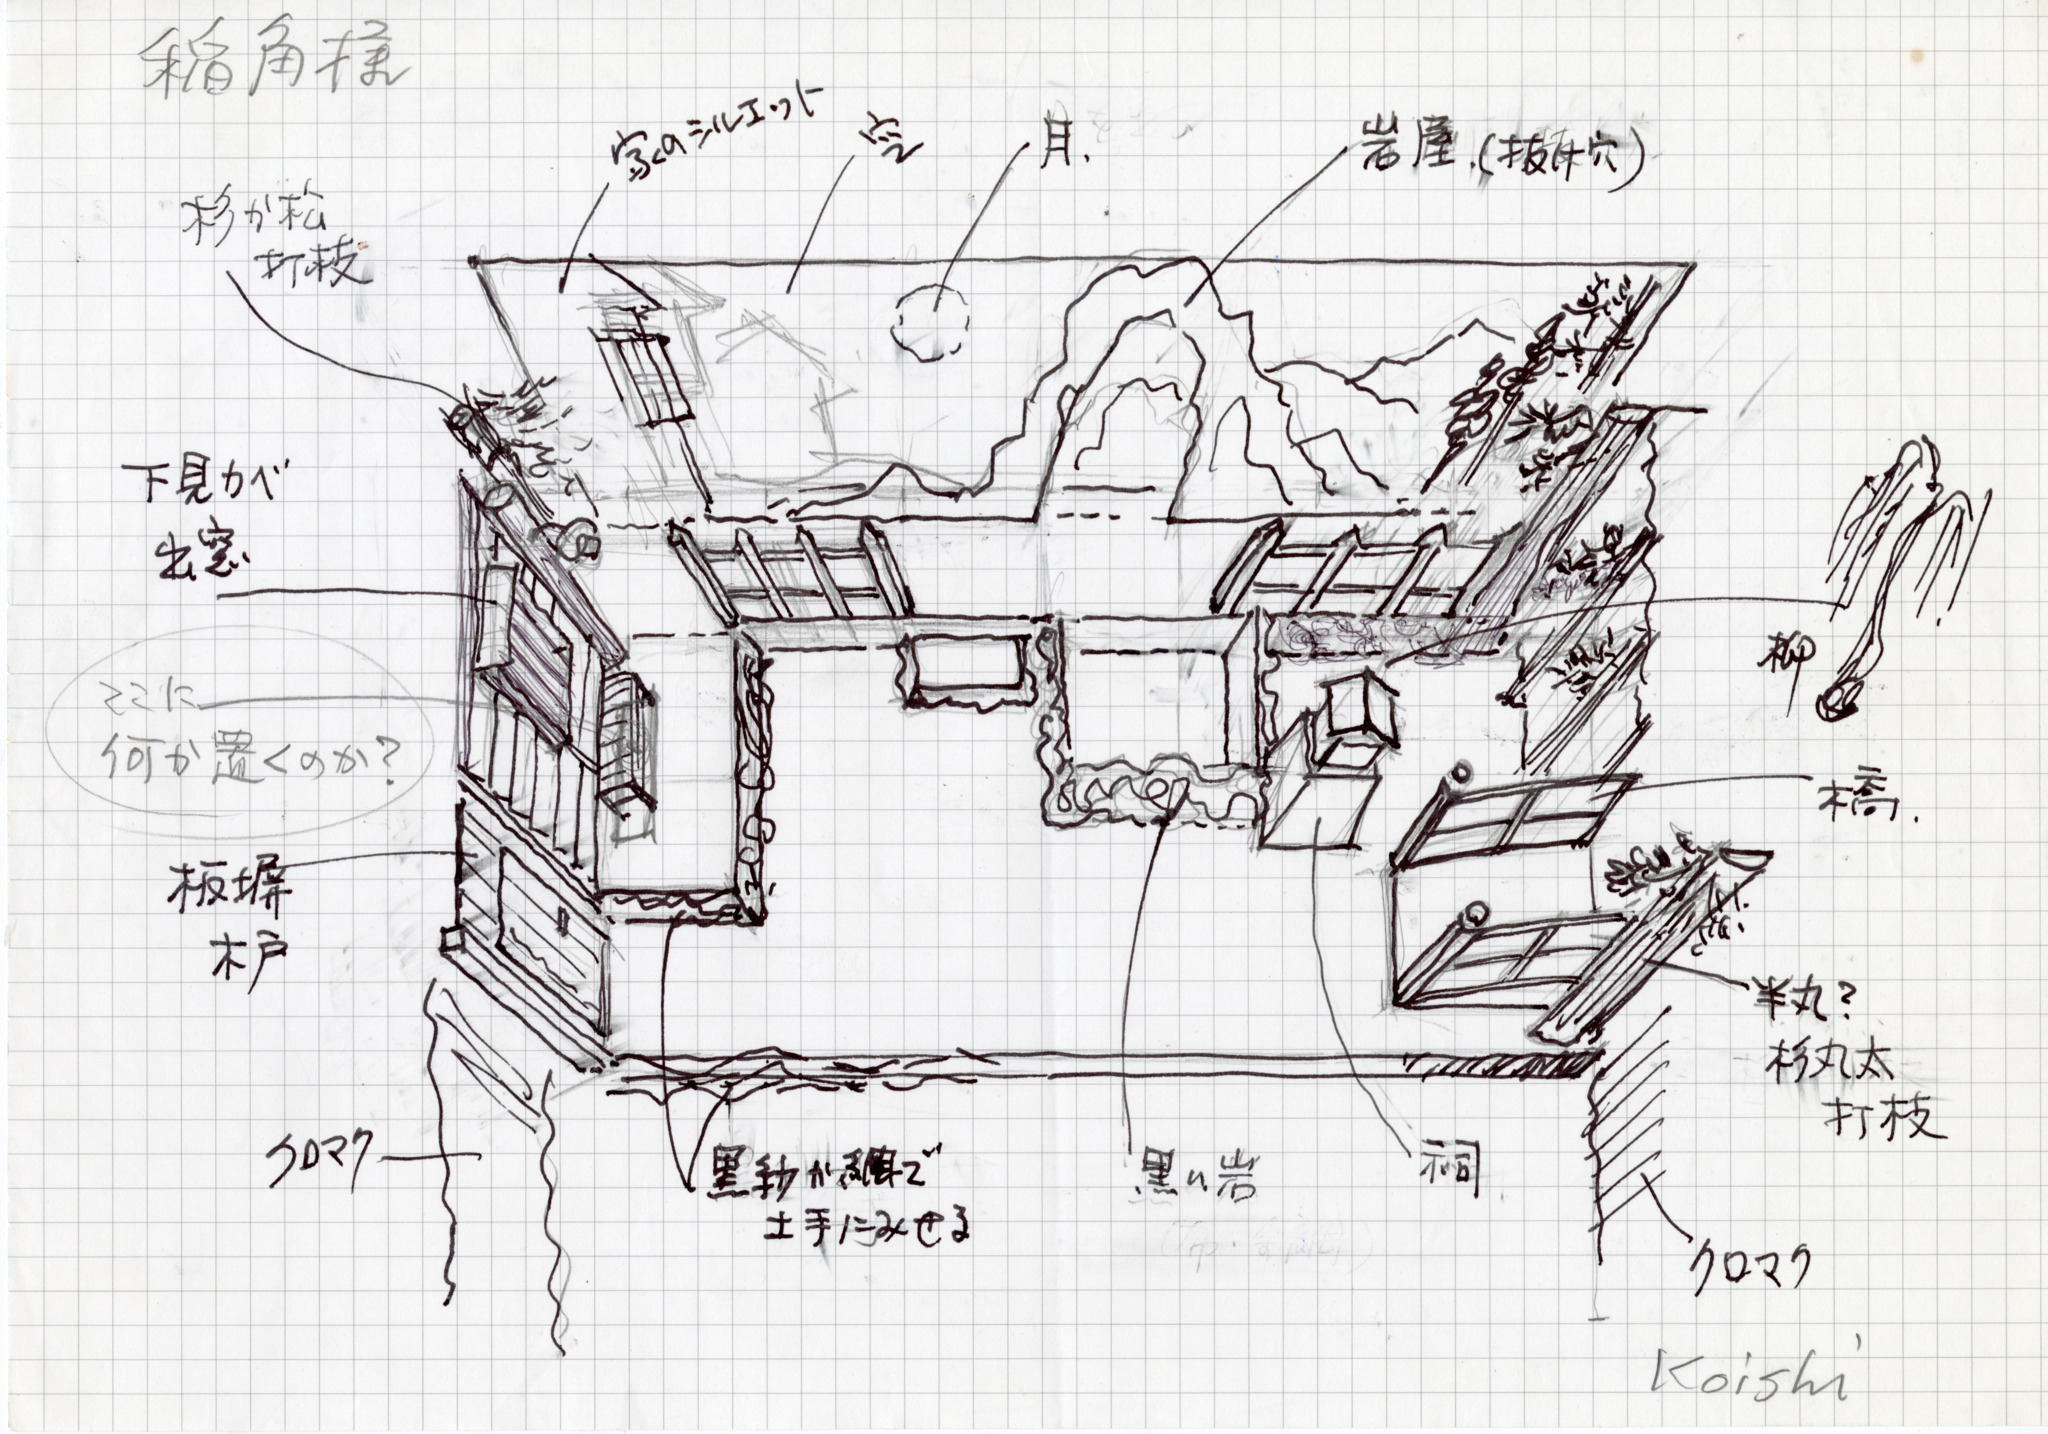 稲角様
家のシルエット
空
月.
岩屋.(抜ケ穴)
杉か松
打枝
下見カベ
出窓
ここに
何か置くのか?
板塀
木戸
柳
橋.
半丸?
杉丸太
打枝
クロマク
黒い岩
祠
土手にみせる
クロマク
Koishi